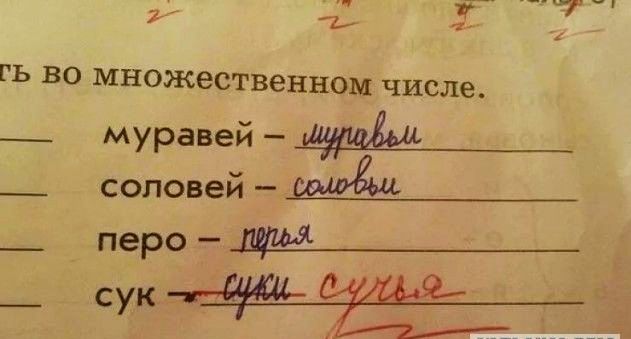 ть во множественном числе.
муравей – муравьи
соловей – соловьи
перо – перья
сук – суки сучья